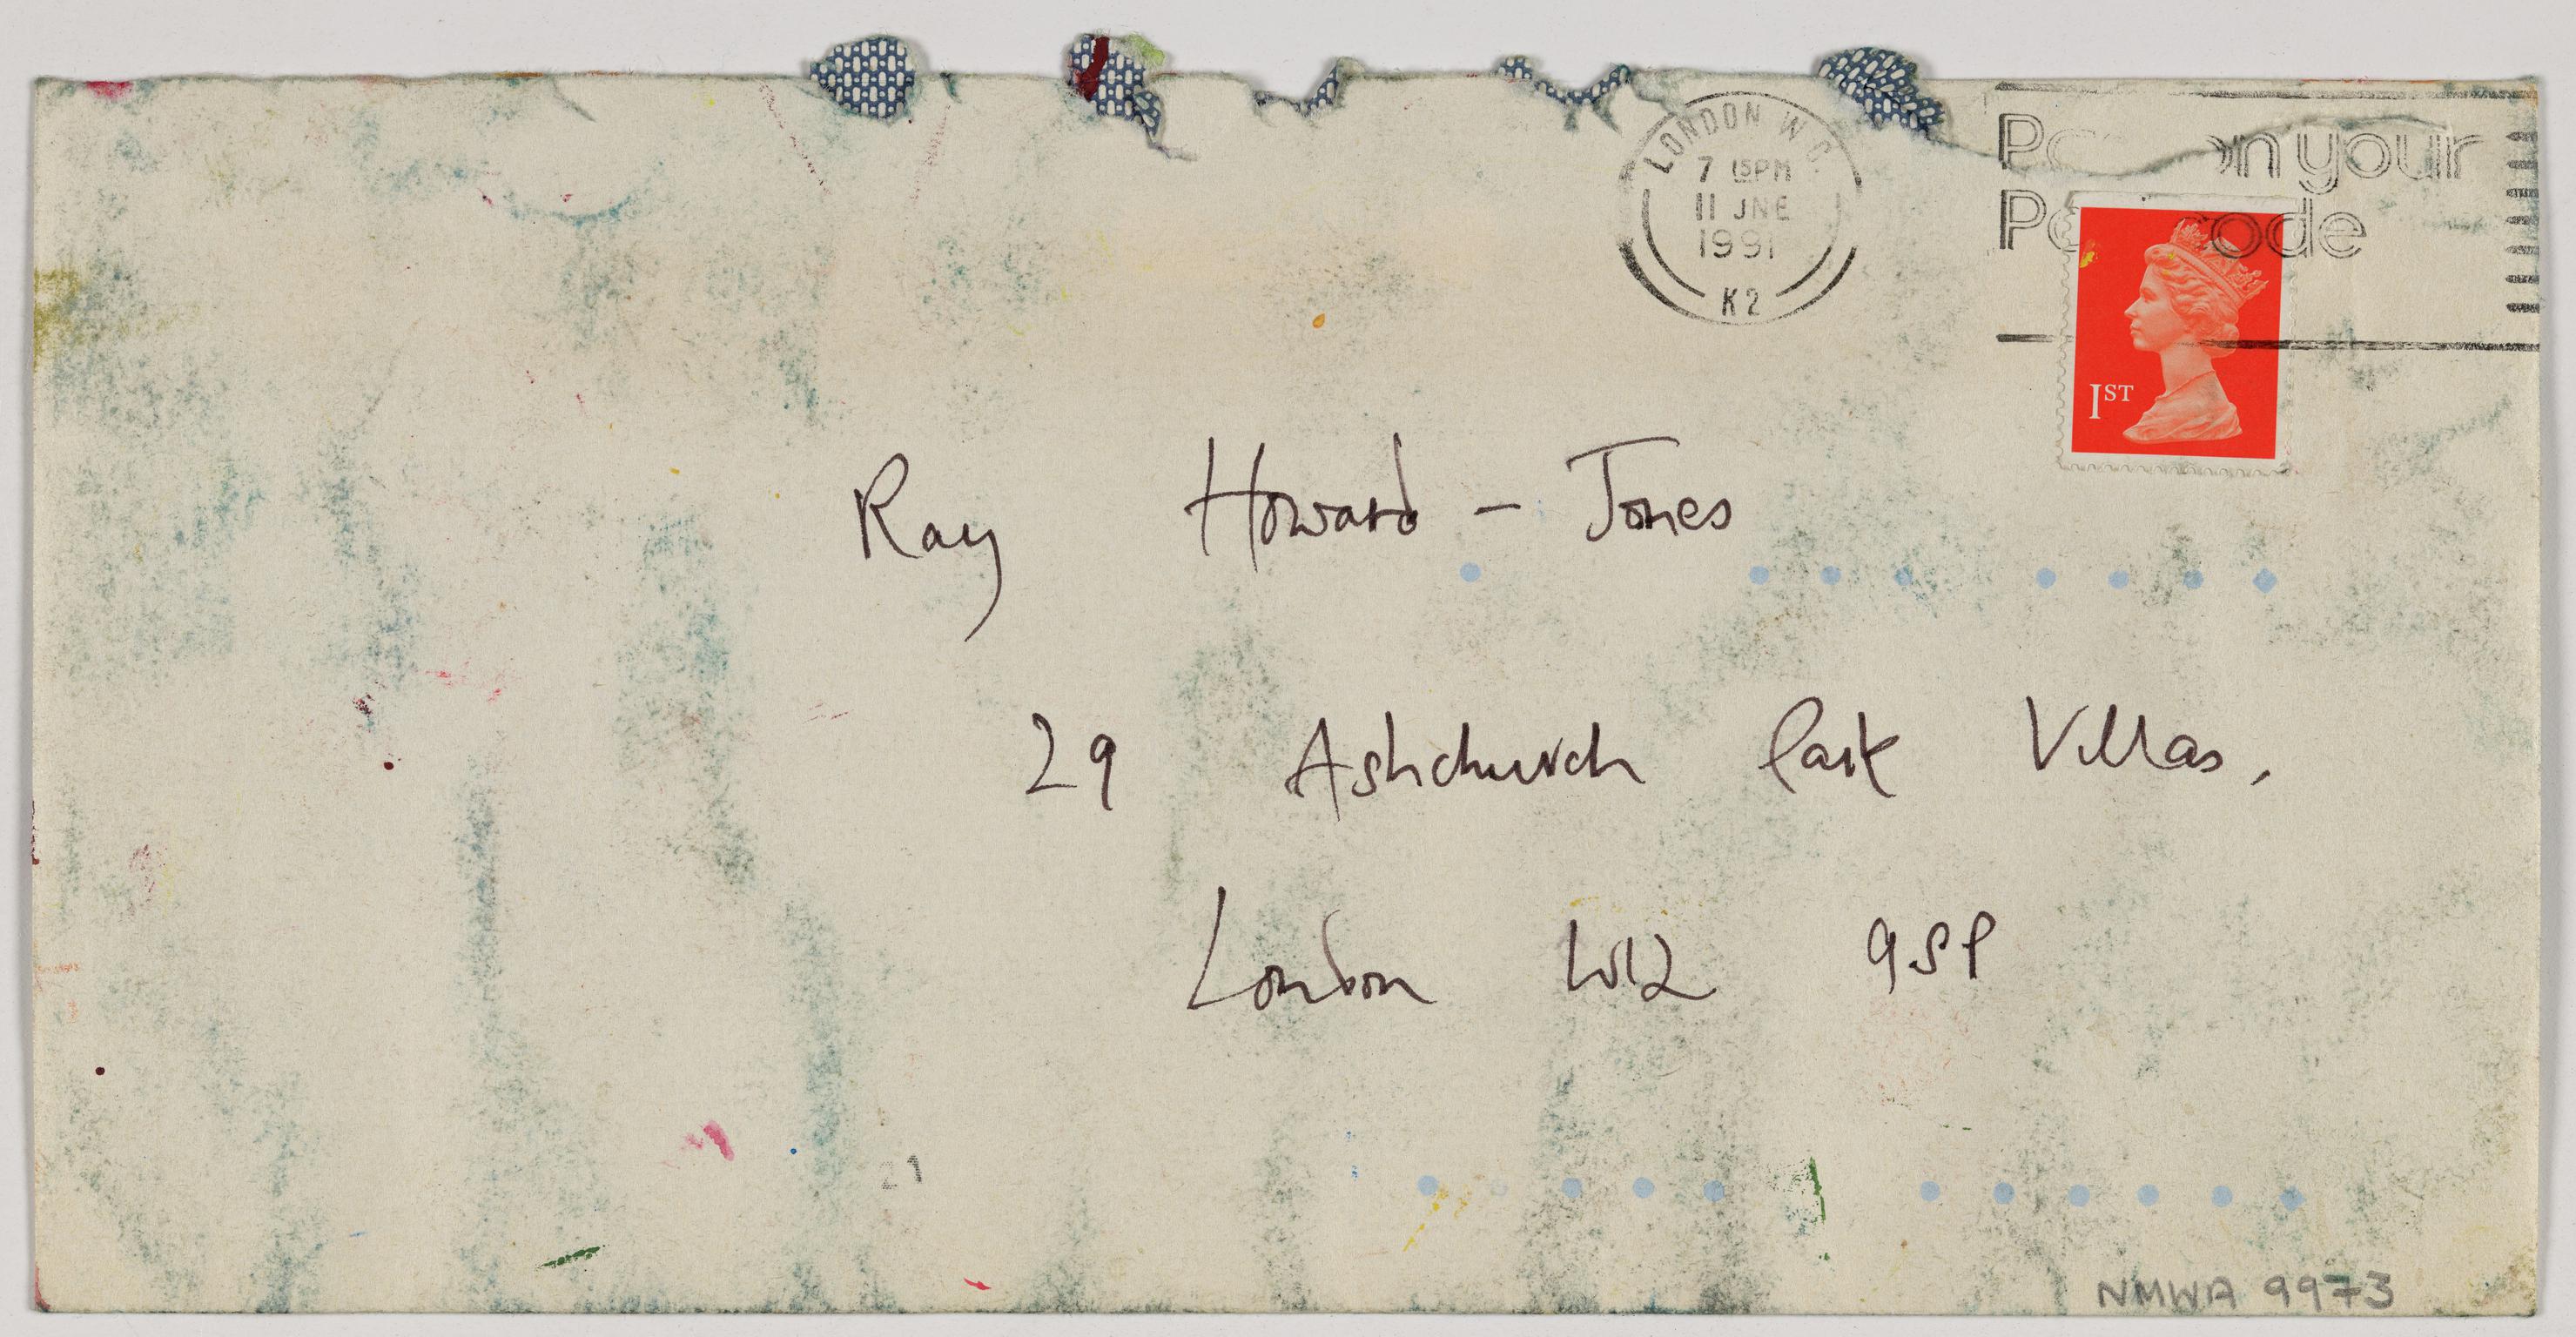 LONDON W.C.
7 15PM
11 JNE
1991
K2
on your
code
1ST
Ray Howard - Jones
29 Ashchurch Park Villas,
London W12 9SP
21
NMWA 9973